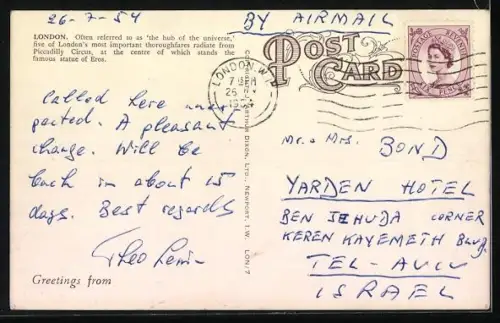 26-7-54
BY AIRMAIL
LONDON. Often referred to as 'the hub of the universe,'
five of London's most important thoroughfares radiate from
Piccadilly Circus, at the centre of which stands the
famous statue of Eros.
POST
CARD
POSTAGE REVENUE
LONDON. W.1
7
26
1954
Called here unex
pected. A pleasant
change. Will be
back in about 15
days. Best regards
Theo
Greetings from
ARTHUR DIXON, LTD., NEWPORT, I.W. LON/7
Mr. & Mrs. BOND
YARDEN HOTEL
BEN JEHUDA CORNER
KEREN KAYEMETH Blvd.
TEL-AVIV
ISRAEL